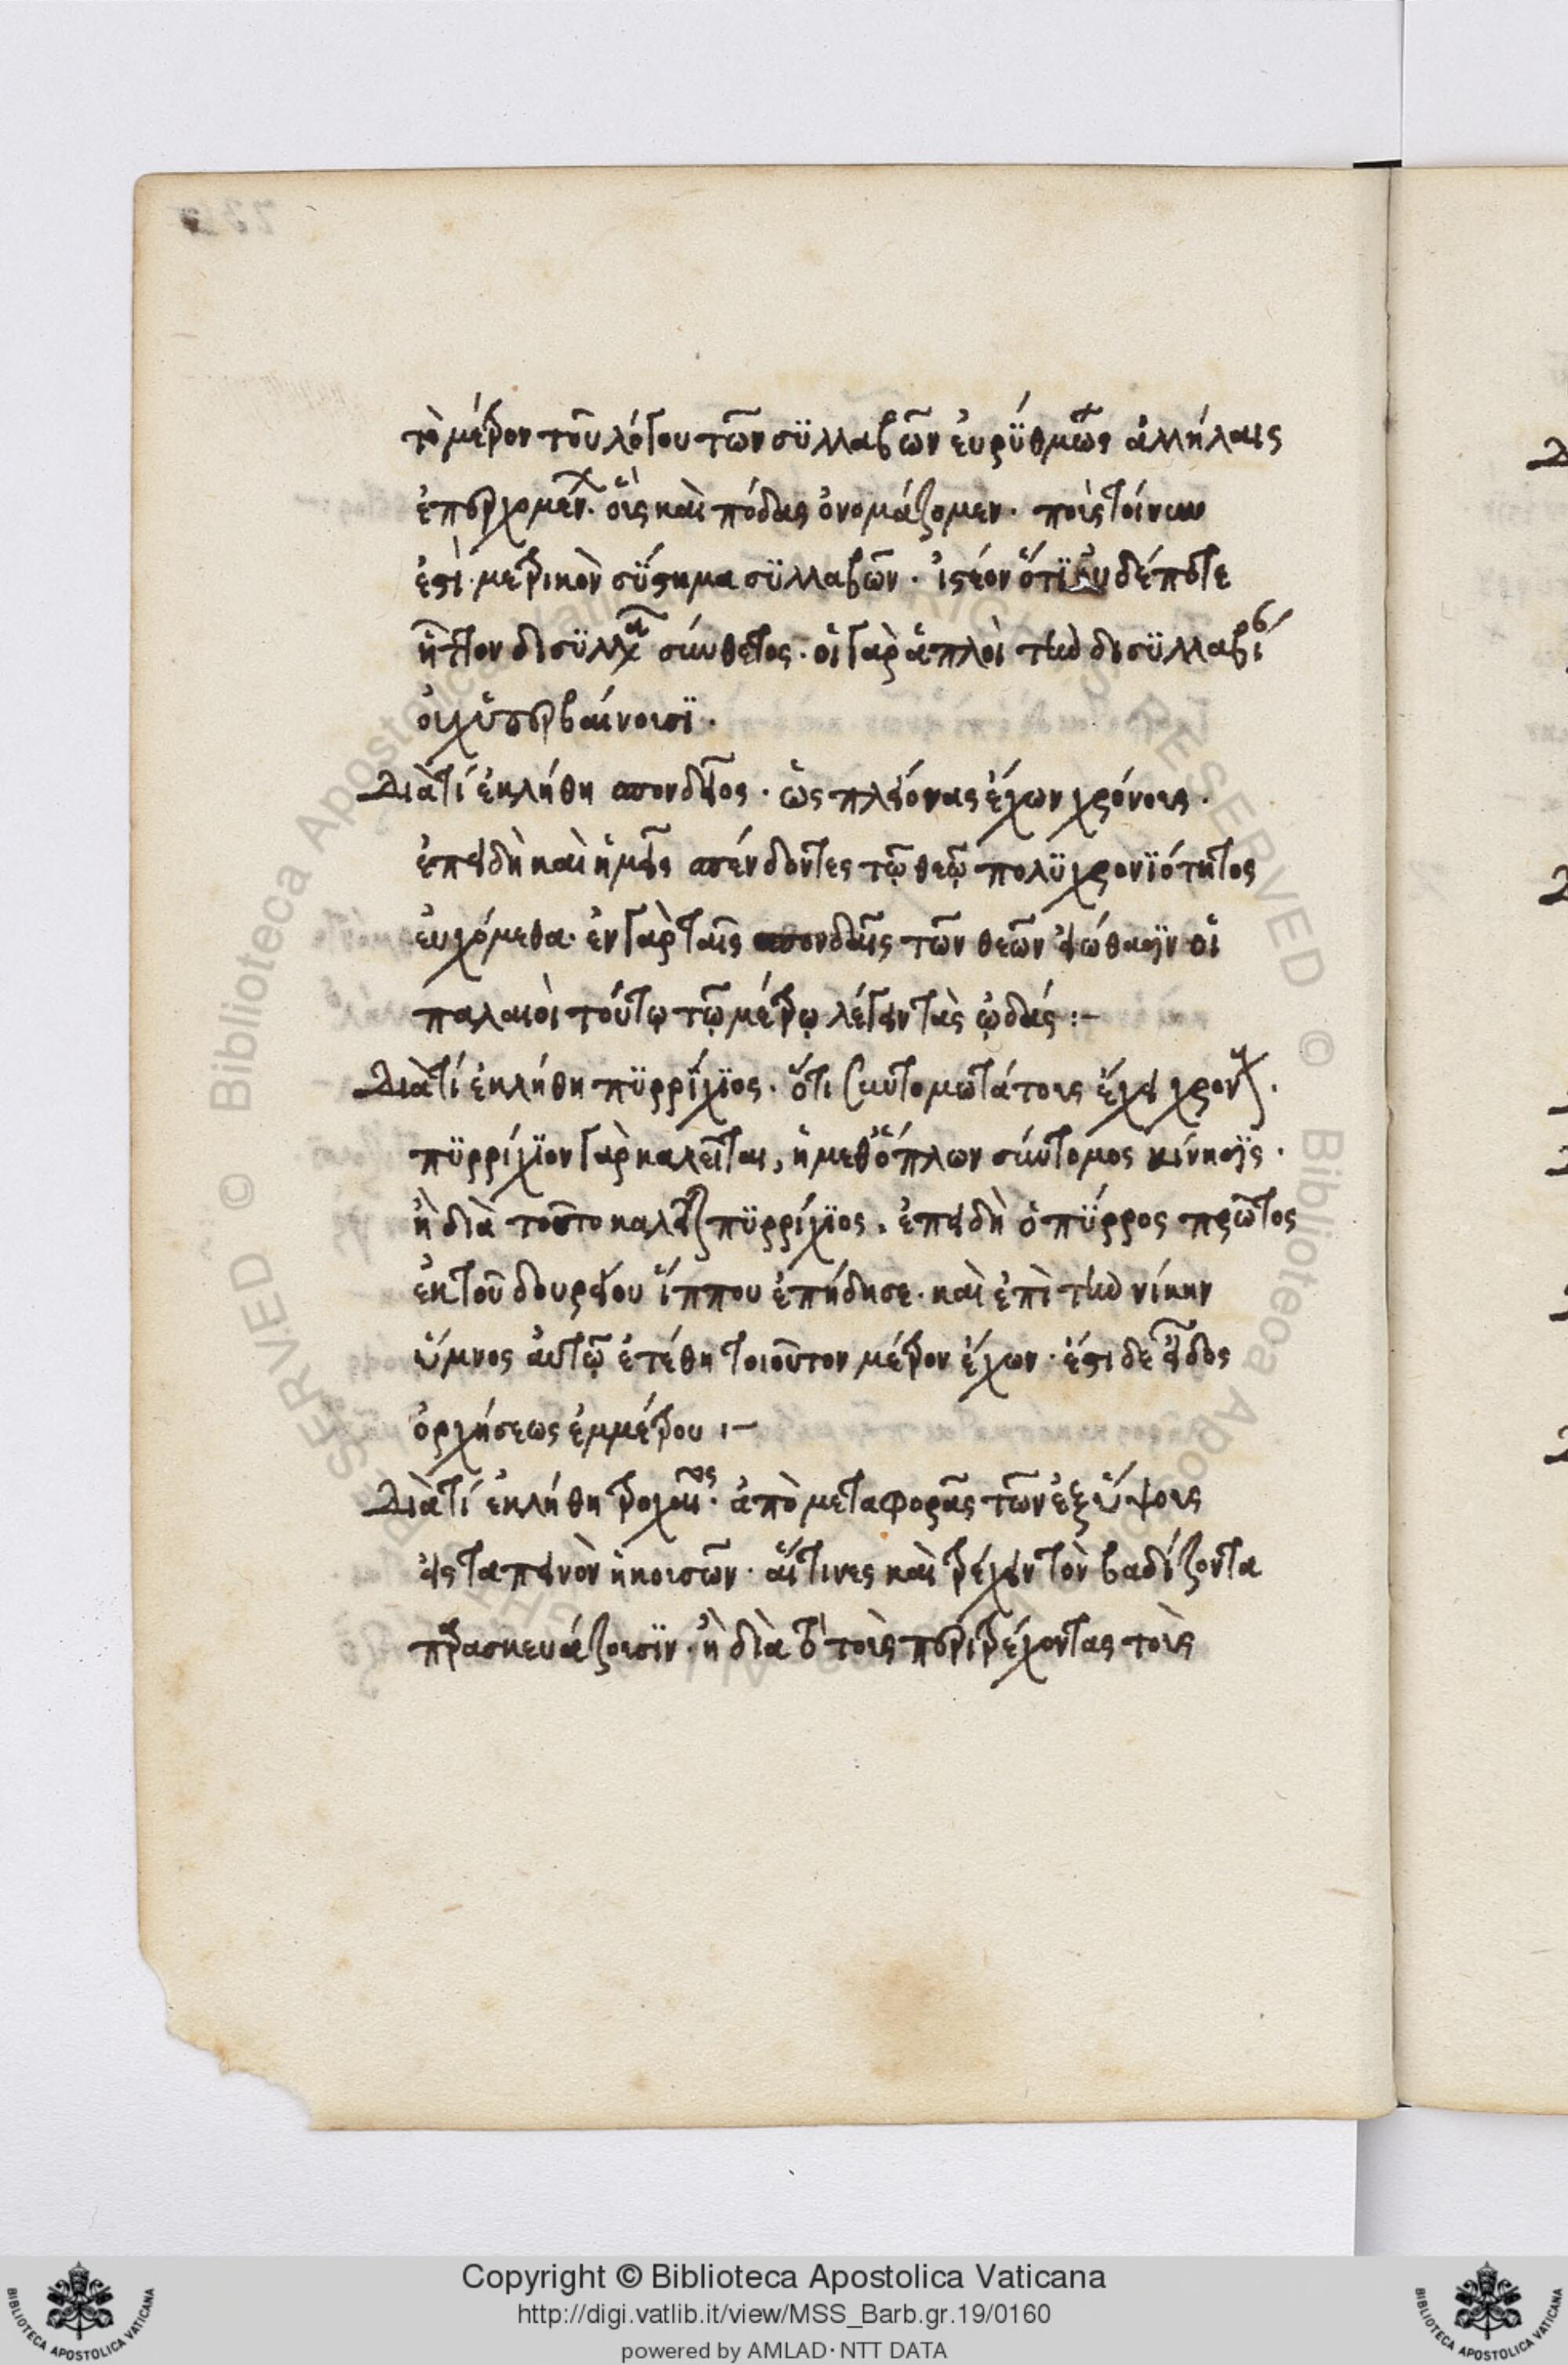 τὸ μέτρον τοῦ λόγου τῶν συλλαβῶν εὐρύθμως ἀλλήλαις
ἐπερχομέν. οὓς καὶ πόδας ὀνομάζομεν. ποὺς τοίνυν
ἐστὶ μετρικὸν σύστημα συλλαβῶν. ἰστέον ὅτι οὐδέποτε
ἧττον δισυλλ σύνθετος. οἱ γὰρ ἁπλοὶ τὴν δισυλλαβί
οὐχ ὑπερβαίνουσι.
Διὰ τί ἐκλήθη σπονδεῖος. ὡς πλείονας ἔχων χρόνους.
ἐπειδὴ καὶ ἡμεῖς σπένδοντες τῷ θεῷ πολυχρονιότητος
εὐχόμεθα. ἐν γὰρ ταῖς σπονδαῖς τῶν θεῶν εἰώθασιν οἱ
παλαιοὶ τούτῳ τῷ μέτρῳ λέγειν τὰς ᾠδάς :-
Διὰ τί ἐκλήθη πυρρίχιος. ὅτι συντομωτάτους ἔχει χρόν.
πυρρίχιον γὰρ καλεῖται, ἡ μεθ' ὅπλων σύντομος κίνησις.
ἢ διὰ τοῦτο καλεῖται πυρρίχιος. ἐπειδὴ ὁ πύρρος πρῶτος
ἐκ τοῦ δουρείου ἵππου ἐπήδησε. καὶ ἐπὶ τὴν νίκην
ὕμνος αὐτῷ ἐτέθη τοιοῦτον μέτρον ἔχων. ἔστι δὲ εἶδος
ὀρχήσεως ἐμμέτρου :-
Διὰ τί ἐκλήθη τροχαῖος. ἀπὸ μεταφορᾶς τῶν ἐξ ὕψους
εἰς ταπεινὸν ἡκουσῶν. αἵτινες καὶ τρέχειν τὸν βαδίζοντα
παρασκευάζουσιν. ἢ διὰ τὸ τοὺς περιτρέχοντας τοὺς
Copyright © Biblioteca Apostolica Vaticana
http://digi.vatlib.it/view/MSS_Barb.gr.19/0160
powered by AMLAD·NTT DATA